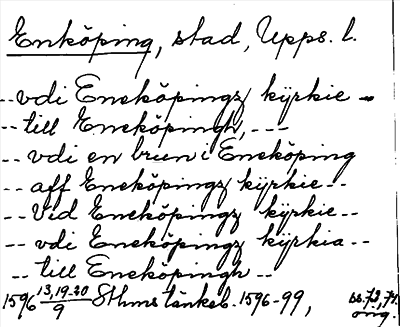 Enköping, stad, Upps. l.
-- vdi Eneköpingz kyrkie --
-- till Eneköpingh, ---
-- vdi en brun i Eneköping
-- aff Eneköpingz kyrkie --
-- Vid Eneköpingz kyrkie --
-- vdi Eneköpingz kyrkia --
-- till Eneköpingh --
1596 13,19-20/9 Sthms tänkeb. 1596-99, ss. 73, 74.
orig.